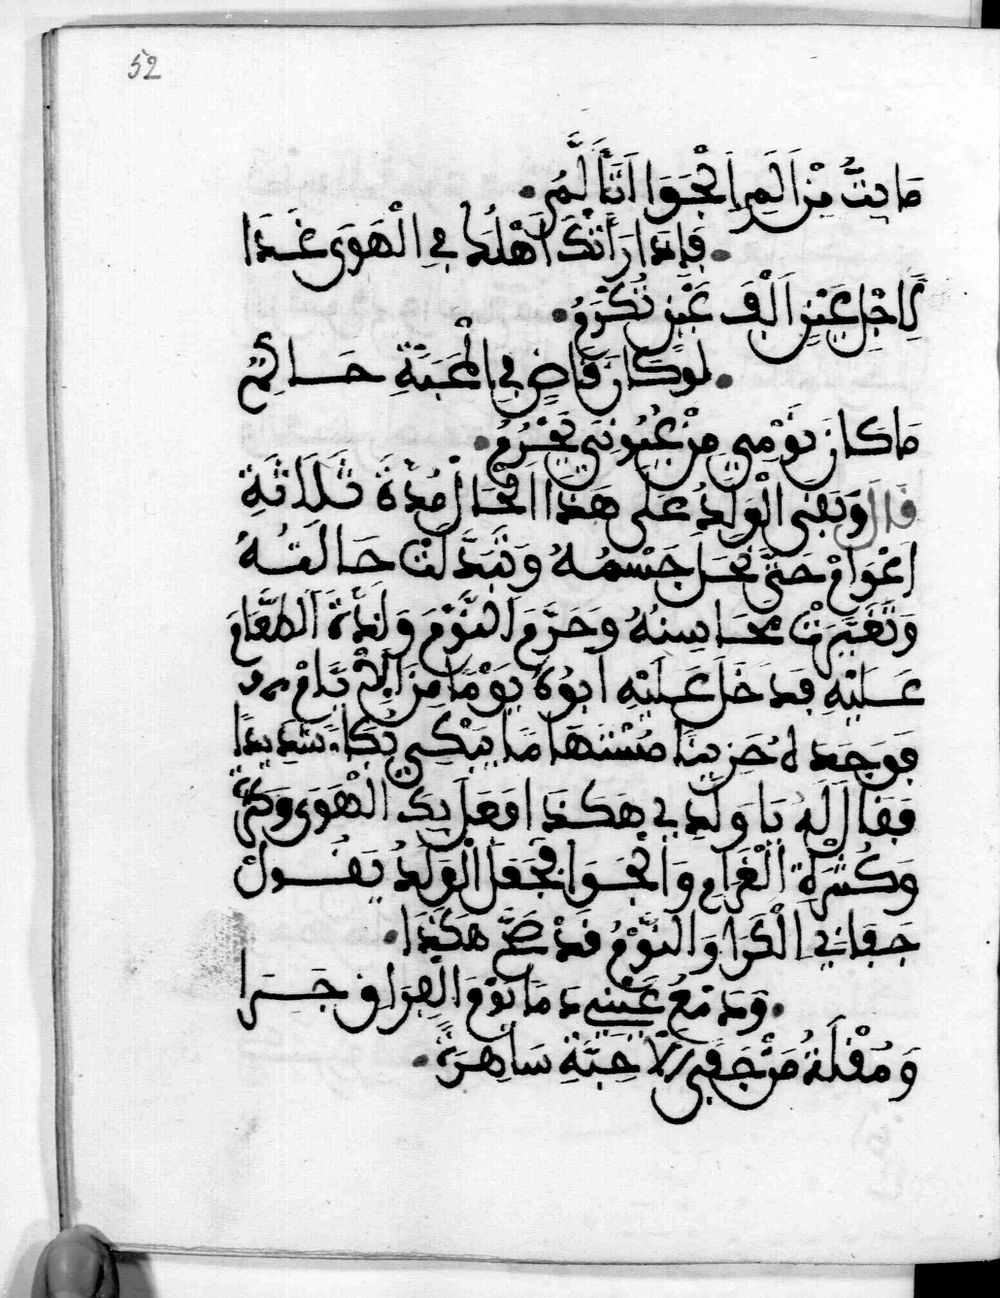 52
مَا بِتُّ مِنْ اَلَمِ اِلْجَوَا اَتَأَلَّمُ.
.فَإِذَا رَأَتْكَ اَهْلُهَا فِي الْهَوَى غَدَا
لَاجْلِ عَيْنٍ اَلْفَ عَيْنٍ تُكْرَمُ.
.لَوْ كَانَ قَاضٍ فِي الْمَحَبَّةِ حَاكِمٌ
مَا كَانَ نَوْمِي مِنْ عُيُونِي يَحْرُمُ.
قَالَ وَبَقَى الْوَلَدُ عَلَى هَذَا الْحَالْ مُدَّةَ ثَلَاثَةِ
اَعْوَامْ حَتَّى نَحَلَ جَسْمُهُ وَتَبَدَّلَتْ حَالَتُهُ
وَتَغَيَّرَتْ مَحَاسِنُهُ وَحَرَّمَ النَّوْمَ وَلَذَّةَ الطَّعَامِ
عَلَيْهِ فَدَخَلَ عَلَيْهِ ابُوهُ يَوْمًا مِنَ الْأَيَّامْ
فَوَجَدَهُ حَزِينًا يَبْكِي بُكَاءً شَدِيدًا
فَقَالَ لَهُ يَا وَلَدِي هَكَذَا فَعَلَ بِكَ الْهَوَى
وَكَثْرَةُ الْغَرَامِ وَالْجَوَا فَجَعَلَ الْوَلَدُ يَقُولْ
جَفَانِي الْكَرَا وَالنَّوْمُ قَدْ صَحَّ هَكَذَا.
.وَدَمْعُ عَيْنِي دَمَا يَوْمَ الْفِرَاقِ جَرَا
وَمُقْلَةُ مَنْ الْأَحِبَّةِ سَاهِرَةٌ.